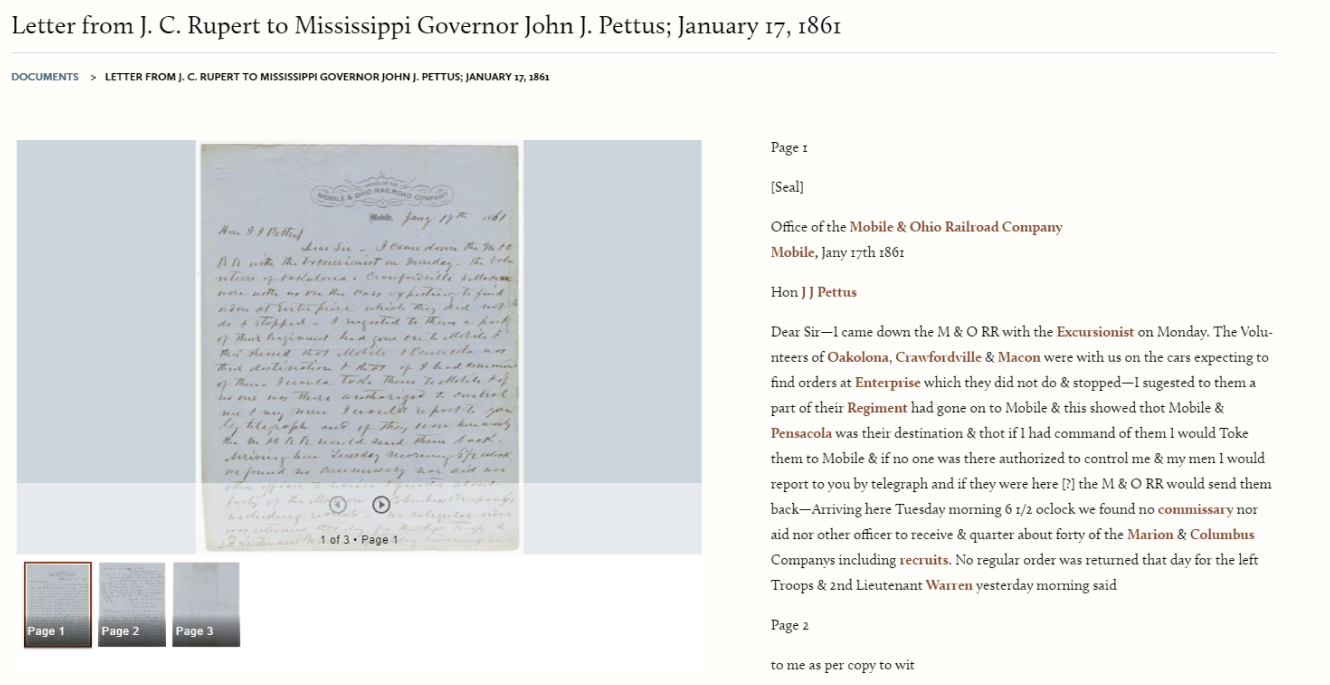 Letter from J. C. Rupert to Mississippi Governor John J. Pettus; January 17, 1861
DOCUMENTS > LETTER FROM J. C. RUPERT TO MISSISSIPPI GOVERNOR JOHN J. PETTUS; JANUARY 17, 1861
OFFICE OF THE
MOBILE & OHIO RAILROAD COMPANY
Mobile, Jany 17th 1861
Hon J J Pettus
Dear Sir — I came down the M & O
R R with the Excursionist on Monday — The Volu
nteers of Oakolona, Crawfordville & Macon
were with us on the cars expecting to find
orders at Enterprise which they did not
do & stopped — I sugested to them a part
of their Regiment had gone on to Mobile &
this showed thot Mobile & Pensacola was
their destination & thot if I had command
of them I would Toke them to Mobile & if
no one was there authorized to control
me & my men I would report to you
by telegraph and if they were
the M & O RR would send them back —
Arriving here Tuesday morning 6 1/2 oclock
we found no commissary nor aid nor
other officer to receive & quarter about
forty of the Columbus Companys
including recruits — No regular order
was returned that day for the Troops &
2d Lieutenant yesterday morning said
1 of 3 • Page 1
Page 1
Page 2
Page 3
Page 1
[Seal]
Office of the Mobile & Ohio Railroad Company
Mobile, Jany 17th 1861
Hon J J Pettus
Dear Sir—I came down the M & O RR with the Excursionist on Monday. The Volu-
nteers of Oakolona, Crawfordville & Macon were with us on the cars expecting to
find orders at Enterprise which they did not do & stopped—I sugested to them a
part of their Regiment had gone on to Mobile & this showed thot Mobile &
Pensacola was their destination & thot if I had command of them I would Toke
them to Mobile & if no one was there authorized to control me & my men I would
report to you by telegraph and if they were here [?] the M & O RR would send them
back—Arriving here Tuesday morning 6 1/2 oclock we found no commissary nor
aid nor other officer to receive & quarter about forty of the Marion & Columbus
Companys including recruits. No regular order was returned that day for the left
Troops & 2nd Lieutenant Warren yesterday morning said
Page 2
to me as per copy to wit